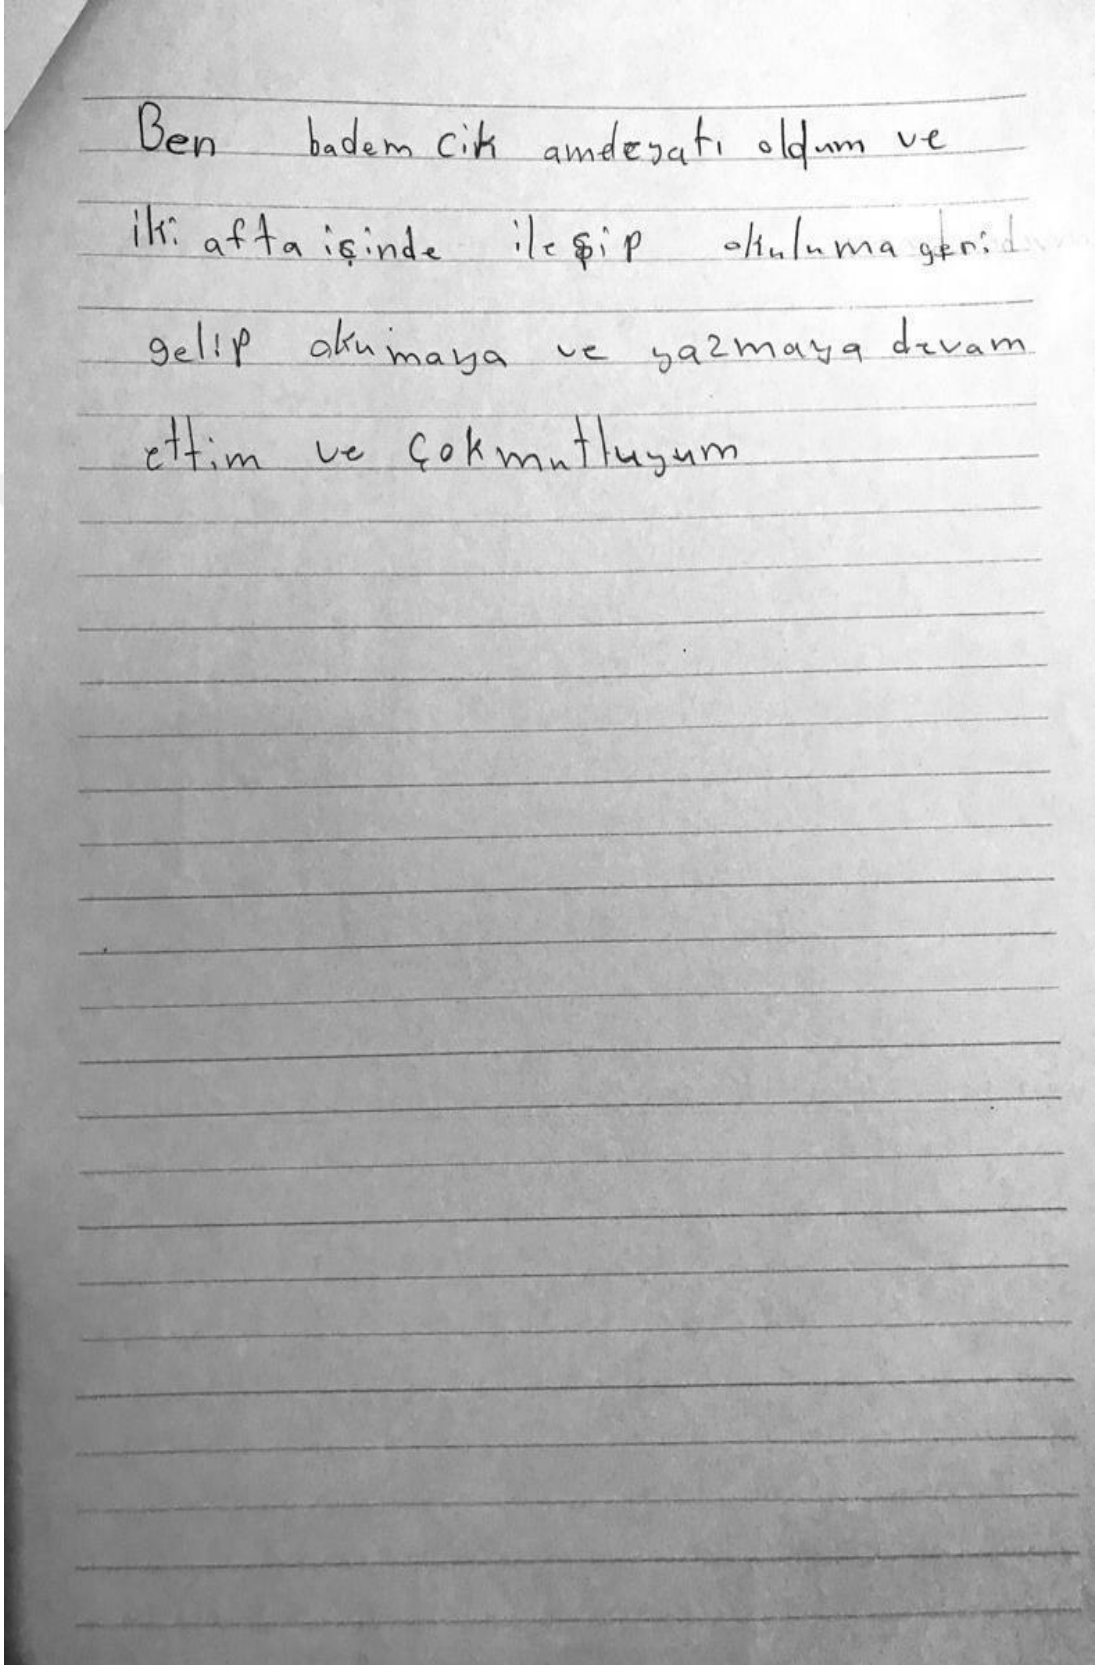 Ben badem cik amdeyatı oldum ve
iki afta işinde ileşip okuluma geri
gelip okumaya ve yazmaya devam
ettim ve çokmutluyum